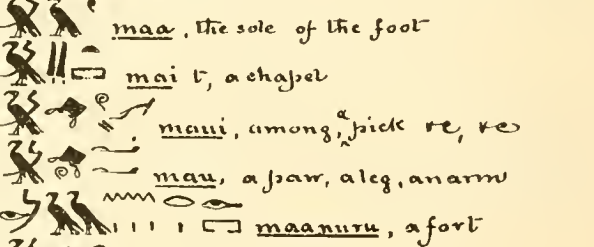 maa, the sole of the foot
mai t, a chapel
maui, among, a pick re, re
mau, a paw, a leg, an arm
maanuru, a fort